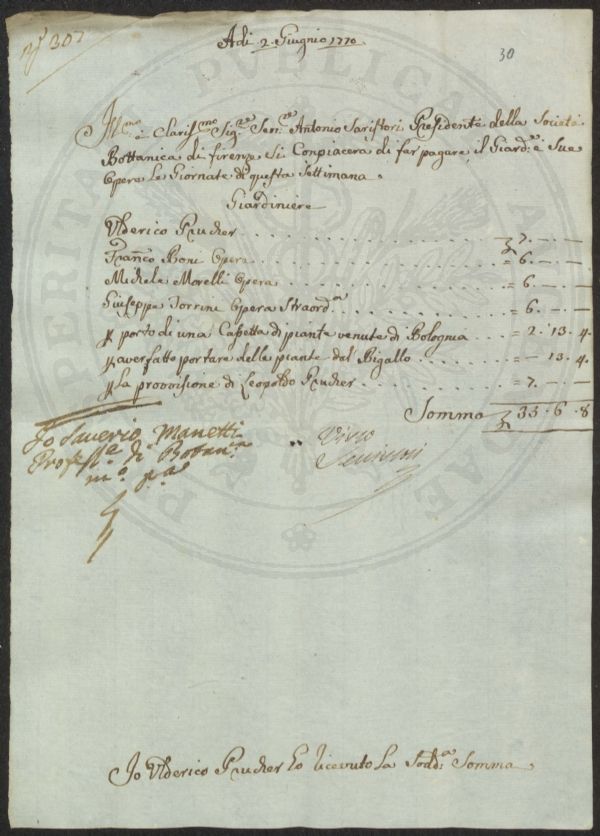 Nº 307
Adi 2. Giugnio 1770.
30
Ill.mo e Clariss.mo Sig.re Sen.re Antonio Saristori Presidente della Società
Bottanica di firenze Si Conpiacerà di far pagare il Giard.re e Sue
Opere Le Giornate di questa Settimana.
Giardiniere
Ulderico Prucker . . . 7. — —
Franco Boni Opera . . . = 6. — —
Michele Morelli Opera . . . = 6. — —
Giuseppe Torrini Opera Straord.a . . . = 6. — —
p porto di una Cassetta di piante venute di Bologna . . . = 2. 13. 4.
p aver fatto portare delle piante dal Bigallo . . . = — 13. 4.
p la provvisione di Leopoldo Prucker . . . = 7. — —
Somma 35. 6. 8
Io Saverio Manetti
Profess.re di Botan.a
m.o p.a
Visto
Io Ulderico Prucker ho ricevuto La Sodd.a Somma.